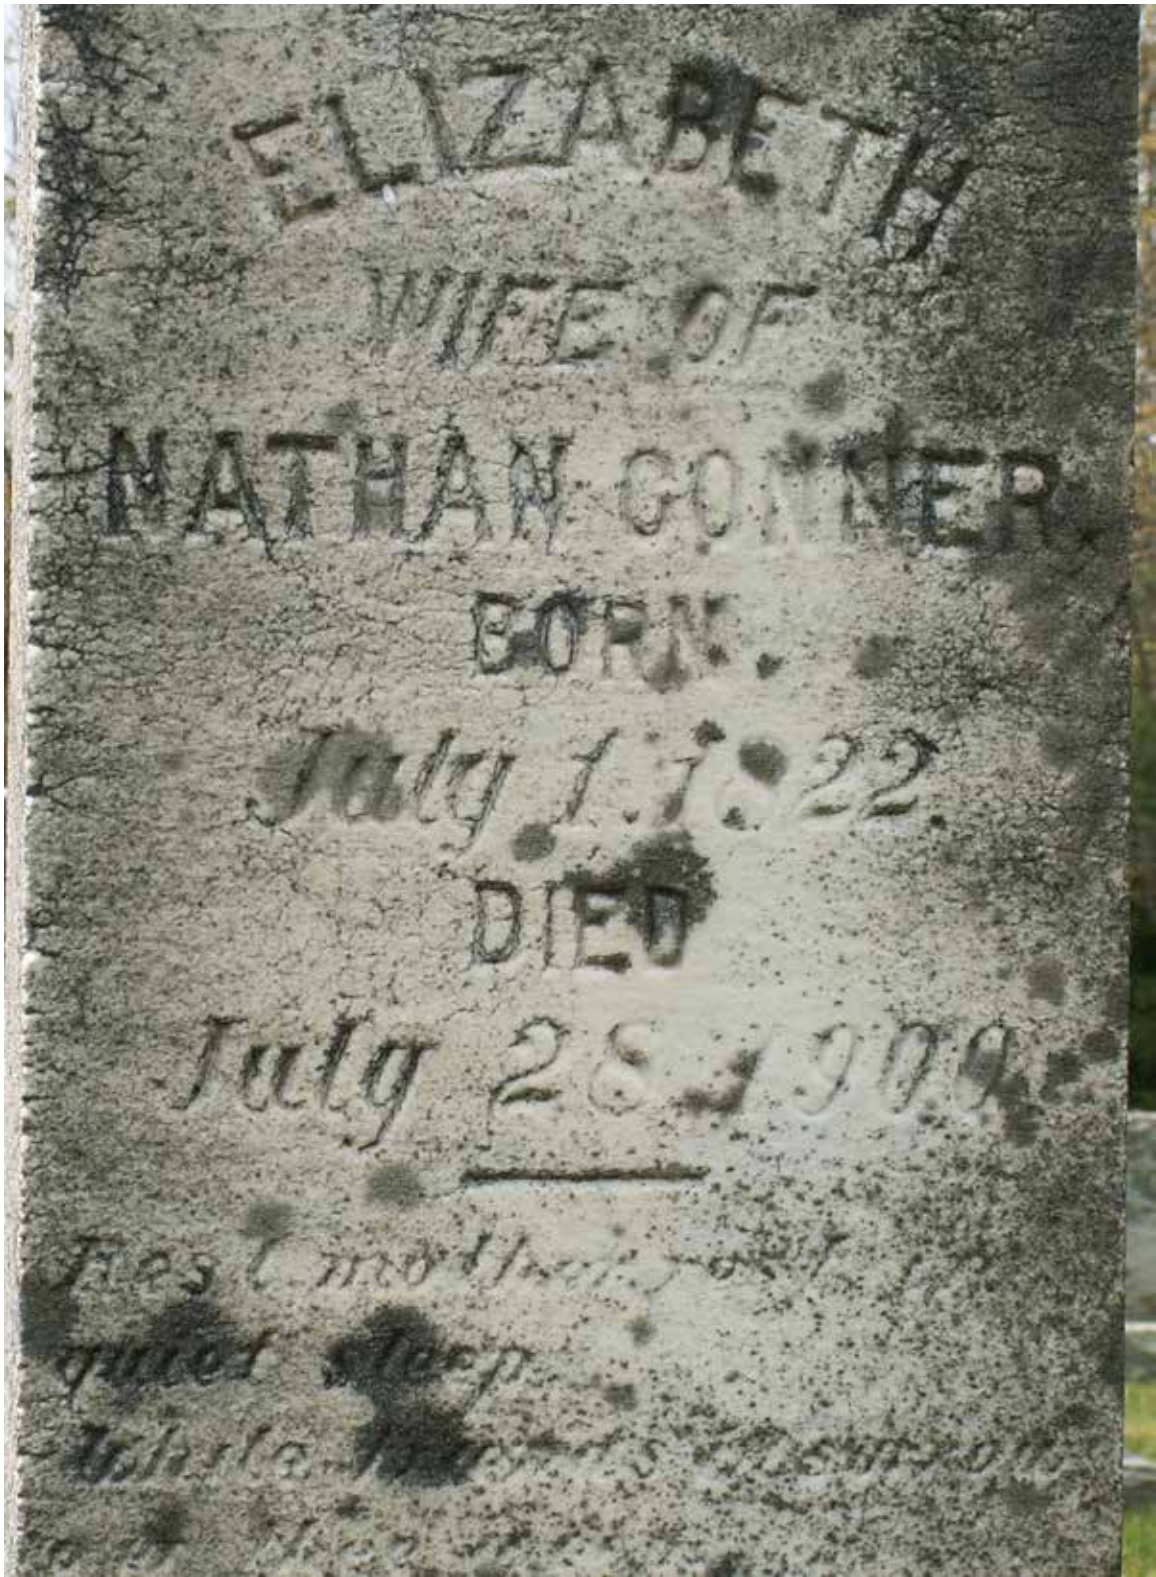 ELIZABETH
WIFE OF
NATHAN CONNER.
BORN.
July 1. 1822.
DIED
July 28. 1900
Rest mother rest in
quiet sleep
While